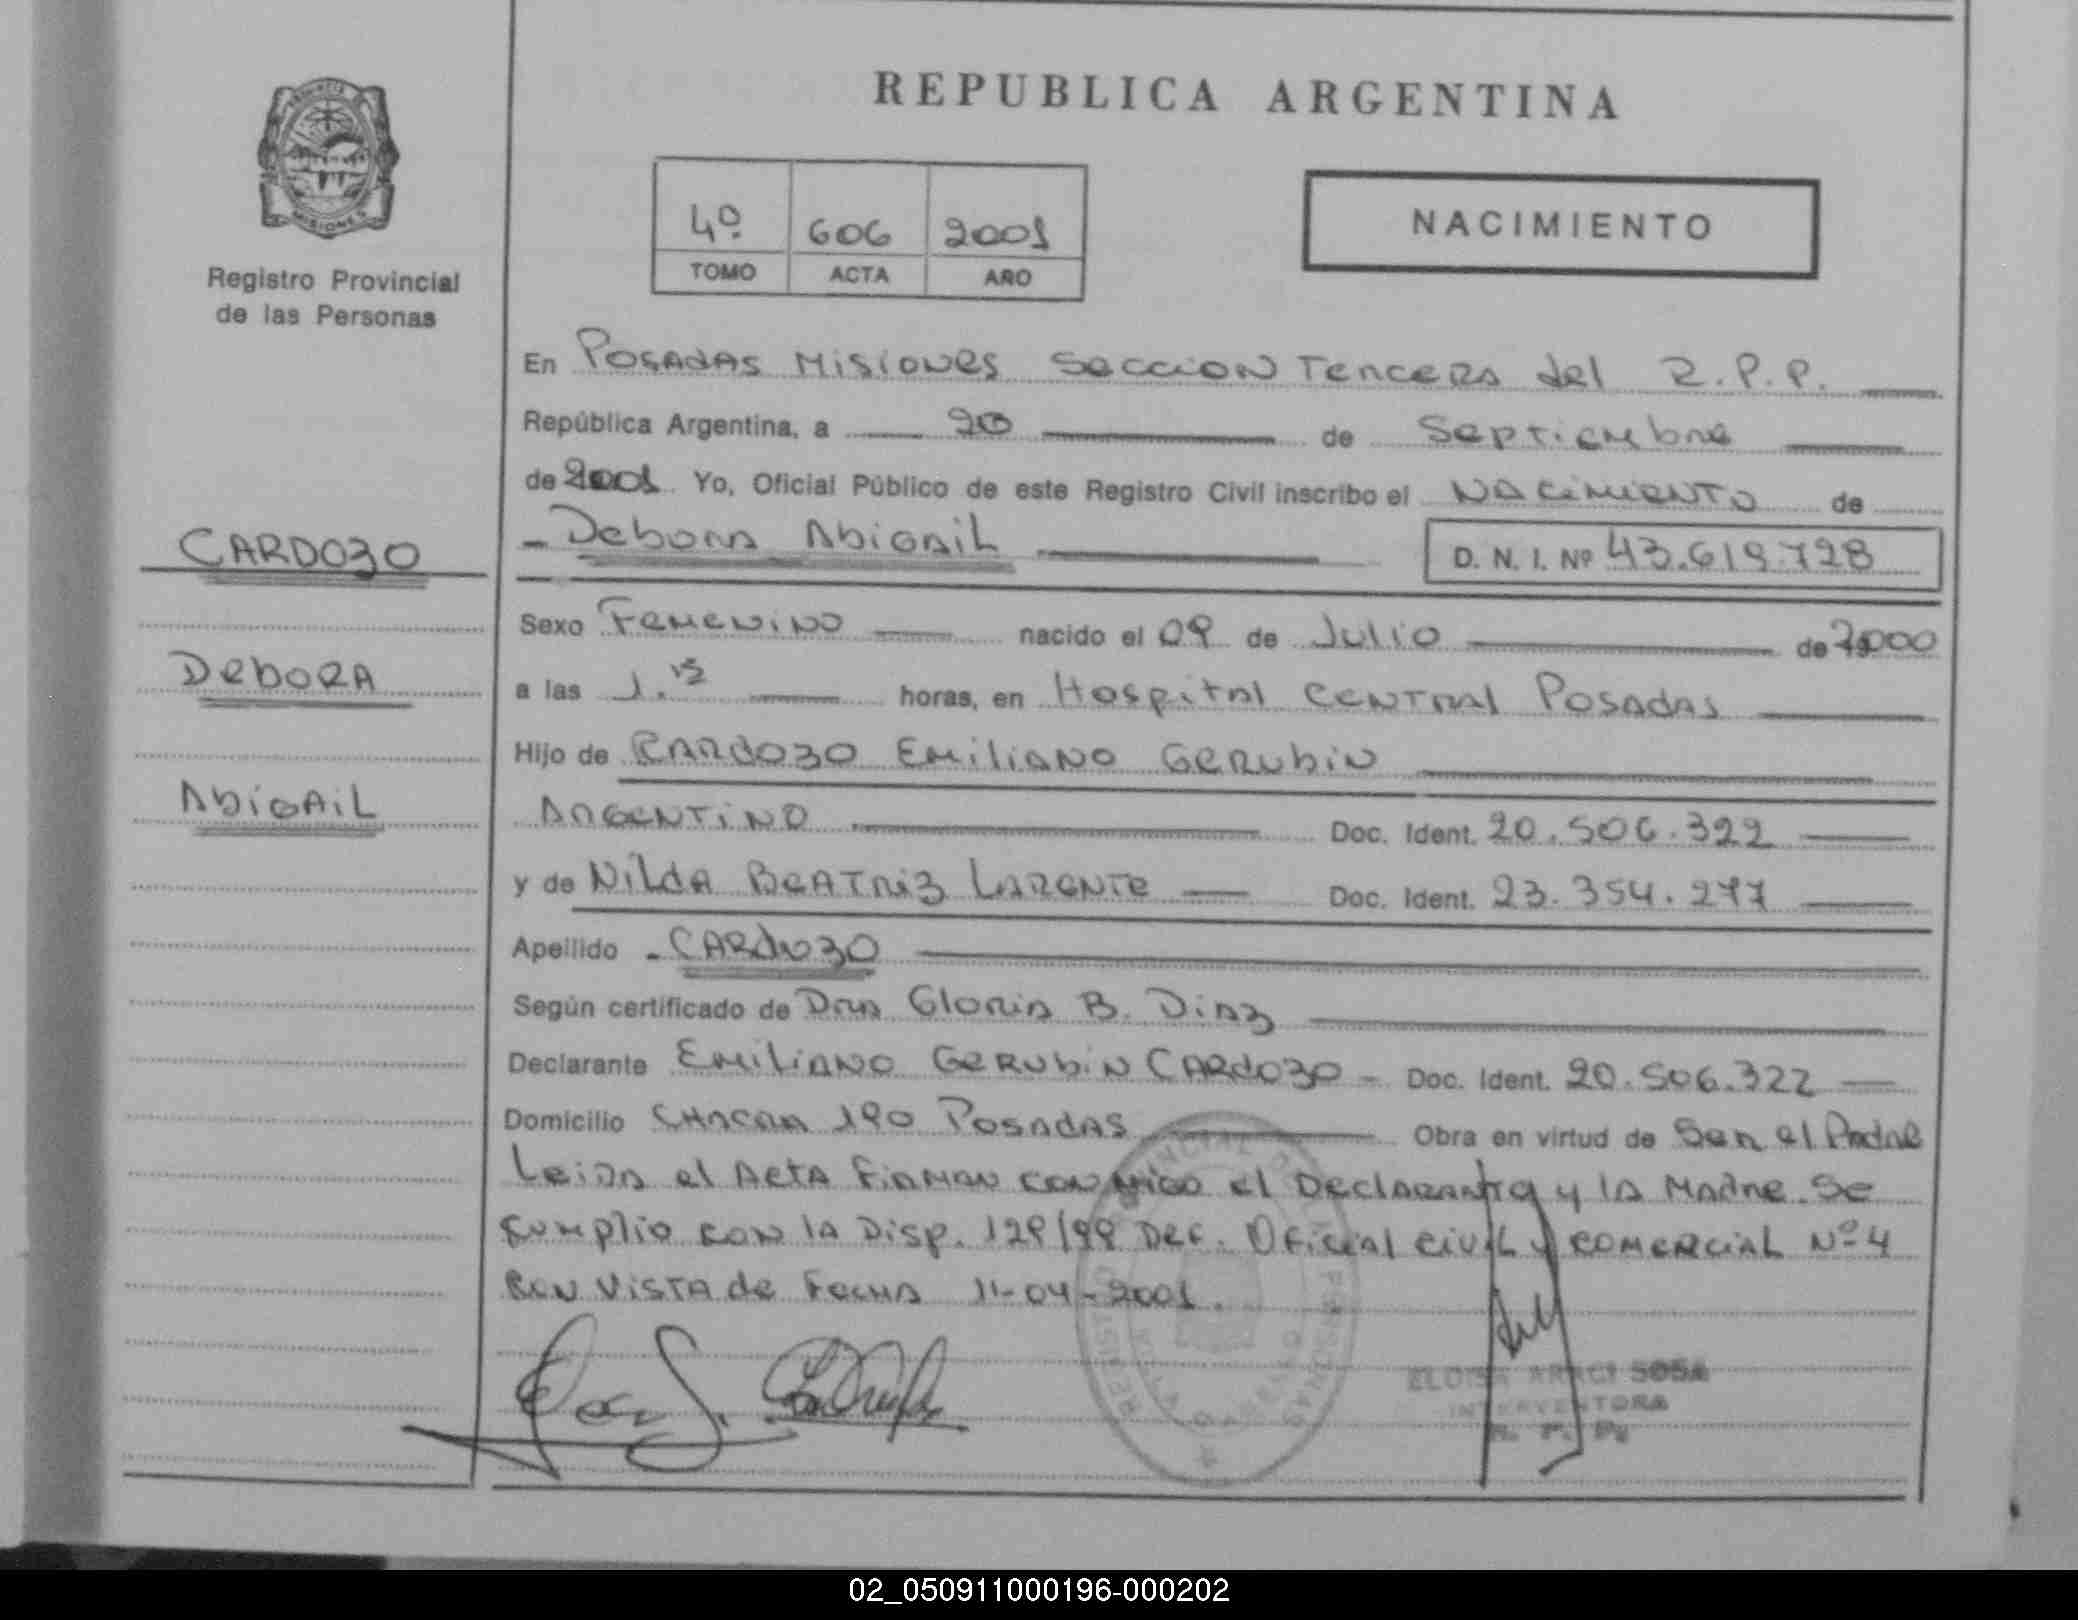 REPUBLICA ARGENTINA
MISIONES
Registro Provincial
de las Personas
4º 606 2001
TOMO ACTA AÑO
NACIMIENTO
En Posadas Misiones Seccion Tercera del R.P.P.
República Argentina, a 20 de Septiembre
de 2001 Yo, Oficial Público de este Registro Civil inscribo el Nacimiento de
Debora Abigail
D. N. I. Nº 43.619.728
CARDOZO
DEBORA
ABIGAIL
Sexo Femenino nacido el 09 de Julio de 2000
a las 1.15 horas, en Hospital Central Posadas
Hijo de Cardozo Emiliano Gerubin
Argentino Doc. Ident. 20.506.322
y de Nilda Beatriz Larente Doc. Ident. 23.354.277
Apellido - Cardozo
Según certificado de Dra Gloria B. Diaz
Declarante Emiliano Gerubin Cardozo - Doc. Ident. 20.506.322
Domicilio Chacra 190 Posadas Obra en virtud de Ser el Padre
Leida el Acta Firman conmigo el Declarante y la Madre. Se
cumplio con la Disp. 129/99 Def. Oficial Civil y Comercial Nº 4
con vista de Fecha 11-04-2001.
ELOISA ARACI SOSA
INTERVENTORA
R. P. P.
02_050911000196-000202